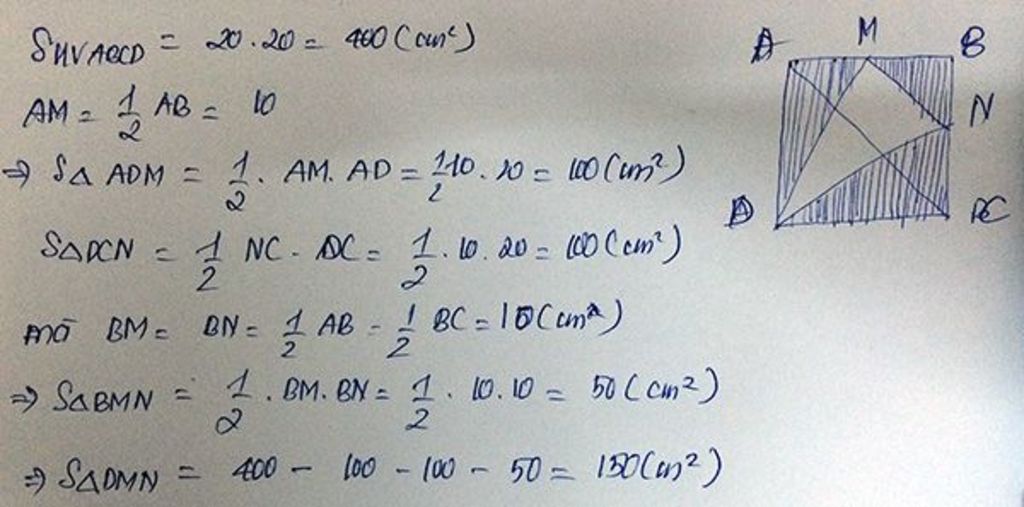 S HV ABCD = 20 . 20 = 400 (cm²)
AM = 1/2 AB = 10
⇒ SΔ ADM = 1/2 . AM. AD = 1/2 10 . 20 = 100 (cm²)
SΔDCN = 1/2 NC . DC = 1/2 . 10. 20 = 100 (cm²)
mà BM = BN = 1/2 AB = 1/2 BC = 10 (cm)
⇒ SΔBMN = 1/2 . BM. BN = 1/2 . 10. 10 = 50 (cm²)
⇒ SΔDMN = 400 - 100 - 100 - 50 = 150 (cm²)
A M B
N
D C